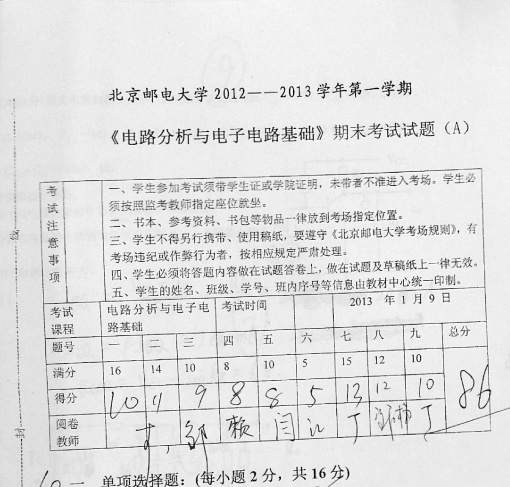 北京邮电大学2012——2013学年第一学期
《电路分析与电子电路基础》期末考试试题（A）
考试注意事项
一、学生参加考试须带学生证或学院证明，未带者不准进入考场。学生必
须按照监考教师指定座位就坐。
二、书本、参考资料、书包等物品一律放到考场指定位置。
三、学生不得另行携带、使用稿纸，要遵守《北京邮电大学考场规则》，有
考场违纪或作弊行为者，按相应规定严肃处理。
四、学生必须将答题内容做在试题答卷上，做在试题及草稿纸上一律无效。
五、学生的姓名、班级、学号、班内序号等信息由教材中心统一印制。
考试课程 电路分析与电子电路基础 考试时间 2013 年 1 月 9 日
题号 一 二 三 四 五 六 七 八 九 总分
满分 16 14 10 8 10 5 15 12 10
得分 10 11 9 8 8 5 13 12 10 86
阅卷教师 邹 赖 闫 江 丁 丁
一、单项选择题：(每小题 2 分，共 16 分)